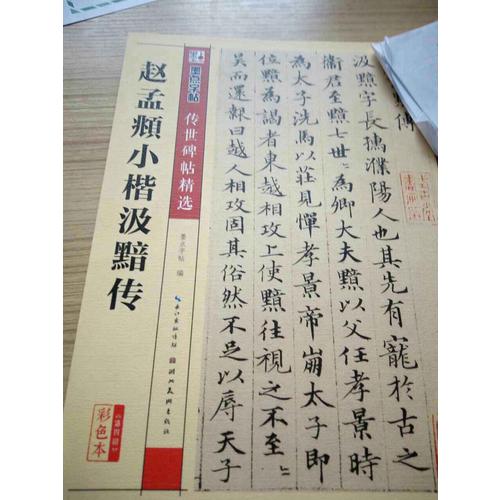 赵孟頫小楷汲黯传
墨点字帖
传世碑帖精选
墨点字帖 编
长江出版传媒
湖北美术出版社
彩色本
《第四辑》
黯傳
汲黯字長孺濮陽人也其先有寵於古之
衞君至黯七世〻為卿大夫黯以父任孝景時
為太子洗馬以莊見憚孝景帝崩太子即
位黯為謁者東越相攻上使黯往視之不至〻
吳而還報曰越人相攻固其俗然不足以辱天子